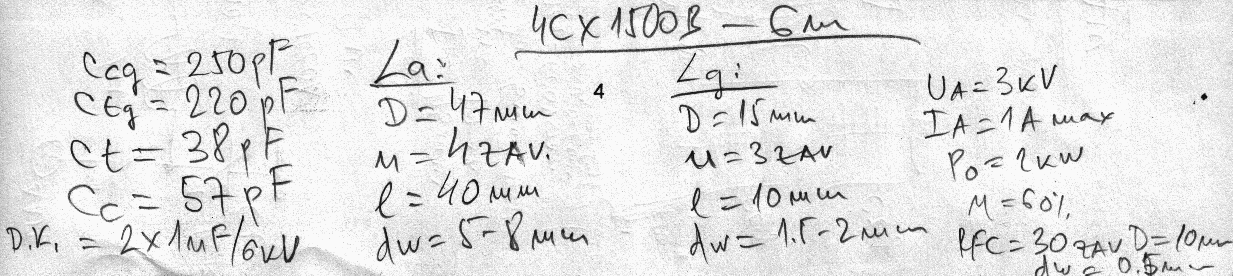 4CX1500B – 6m
Ccg = 250pF
Ctg = 220pF
Ct = 38pF
Cc = 57pF
D.K. = 2x1nF/6kV
La:
D = 47mm
n = 4zAV.
l = 40mm
dw = 5-8mm
4
Lg:
D = 15mm
n = 3zAV
l = 10mm
dw = 1.5-2mm
UA = 3kV
IA = 1A max
Po = 2kW
η = 60%
RFC = 30zAV D = 10mm
dw = 0.5mm